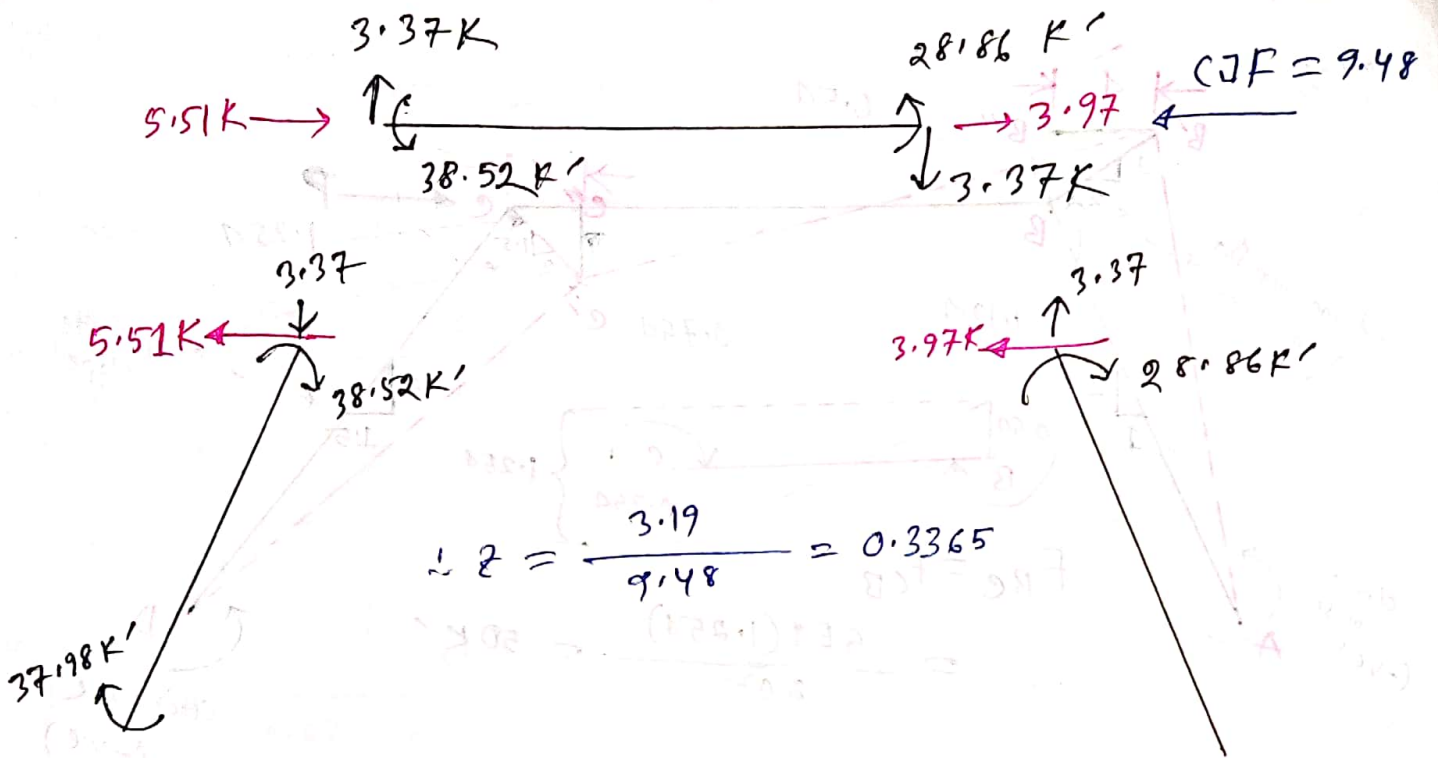 3.37K
28.86 K'
CJF = 9.48
5.51K
3.97
38.52 K'
3.37K
3.37
3.37
5.51K
3.97K
38.52K'
28.86K'
∴ Z = 3.19 / 9.48 = 0.3365
37.98K'